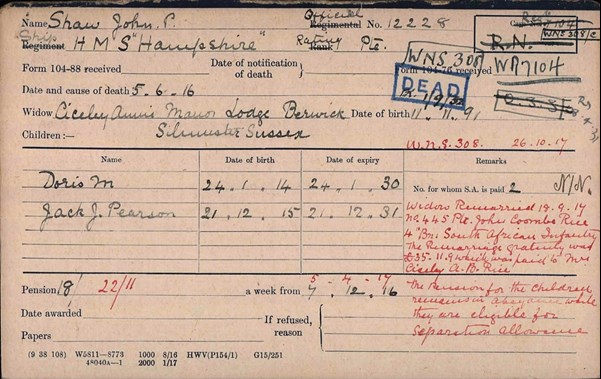 Name Shaw John, P. Official Regimental No. 12228
Ship Regiment H M S "Hampshire" Rating Rank Pte. R.N.
WNS 308/C
Form 104-88 received Date of notification of death WNS 308 Form 104-76 received WR7104
Date and cause of death 5-6-16 DEAD
Widow Ciceley Annis Manor Lodge Berwick Date of birth 11.11.91
Children:— Silmuster Sussex W.N.S. 308. 26.10.17
Name Date of birth Date of expiry Remarks
No. for whom S.A. is paid 2 N/N.
Doris M 24.1.14 24.1.30
Jack J. Pearson 21.12.15 21.12.31
Widow Remarried 19.9.17
No 445 Pte. John Coombs Rice
4th Bn. South African Infantry
The Remarriage gratuity was
£35.11.9 which was paid to Mrs
Ciceley A. B. Rice
The Pension for the children
remains in abeyance while
they are eligible for
Separation Allowance
5-4-17
Pension 18/ 22/11 a week from 7.12.16
Date awarded
Papers
If refused, reason
(9 38 108) W5811—8773 1000 8/16 HWV(P154/1) G15/251
48040A—1 2000 1/17